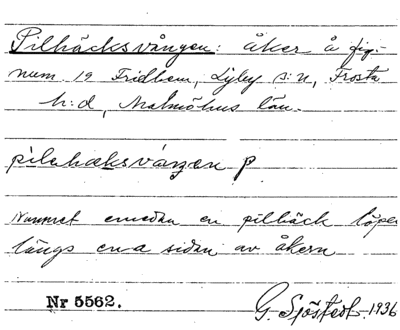 Pilhäcksvången: åker å fig.
num. 19 Fridhem, Lyby s:n, Frosta
h:d, Malmöhus län.
pilahæksvåŋen p
Namnet emedan en pilhäck löper
längs ena sidan av åkern
Nr 5562. G. Sjöstedt. 1936